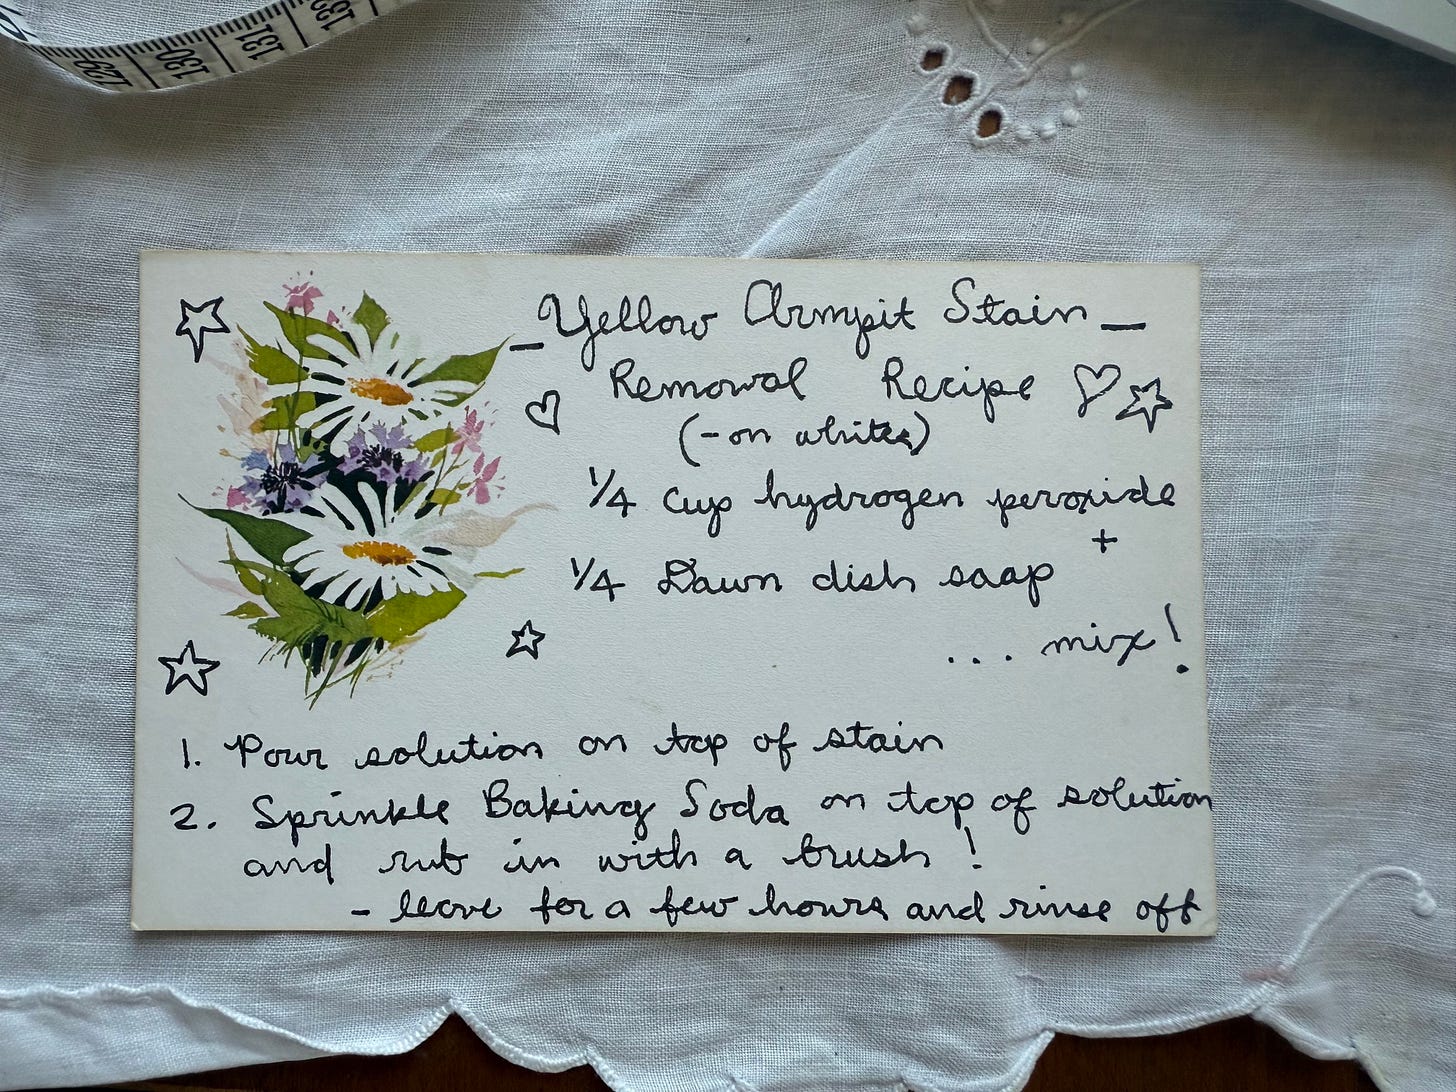 129 130 131 132
- Yellow Armpit Stain -
Removal Recipe
(-on whites)
1/4 cup hydrogen peroxide
+
1/4 Dawn dish soap
... mix!
1. Pour solution on top of stain
2. Sprinkle Baking Soda on top of solution
and rub in with a brush!
- leave for a few hours and rinse off